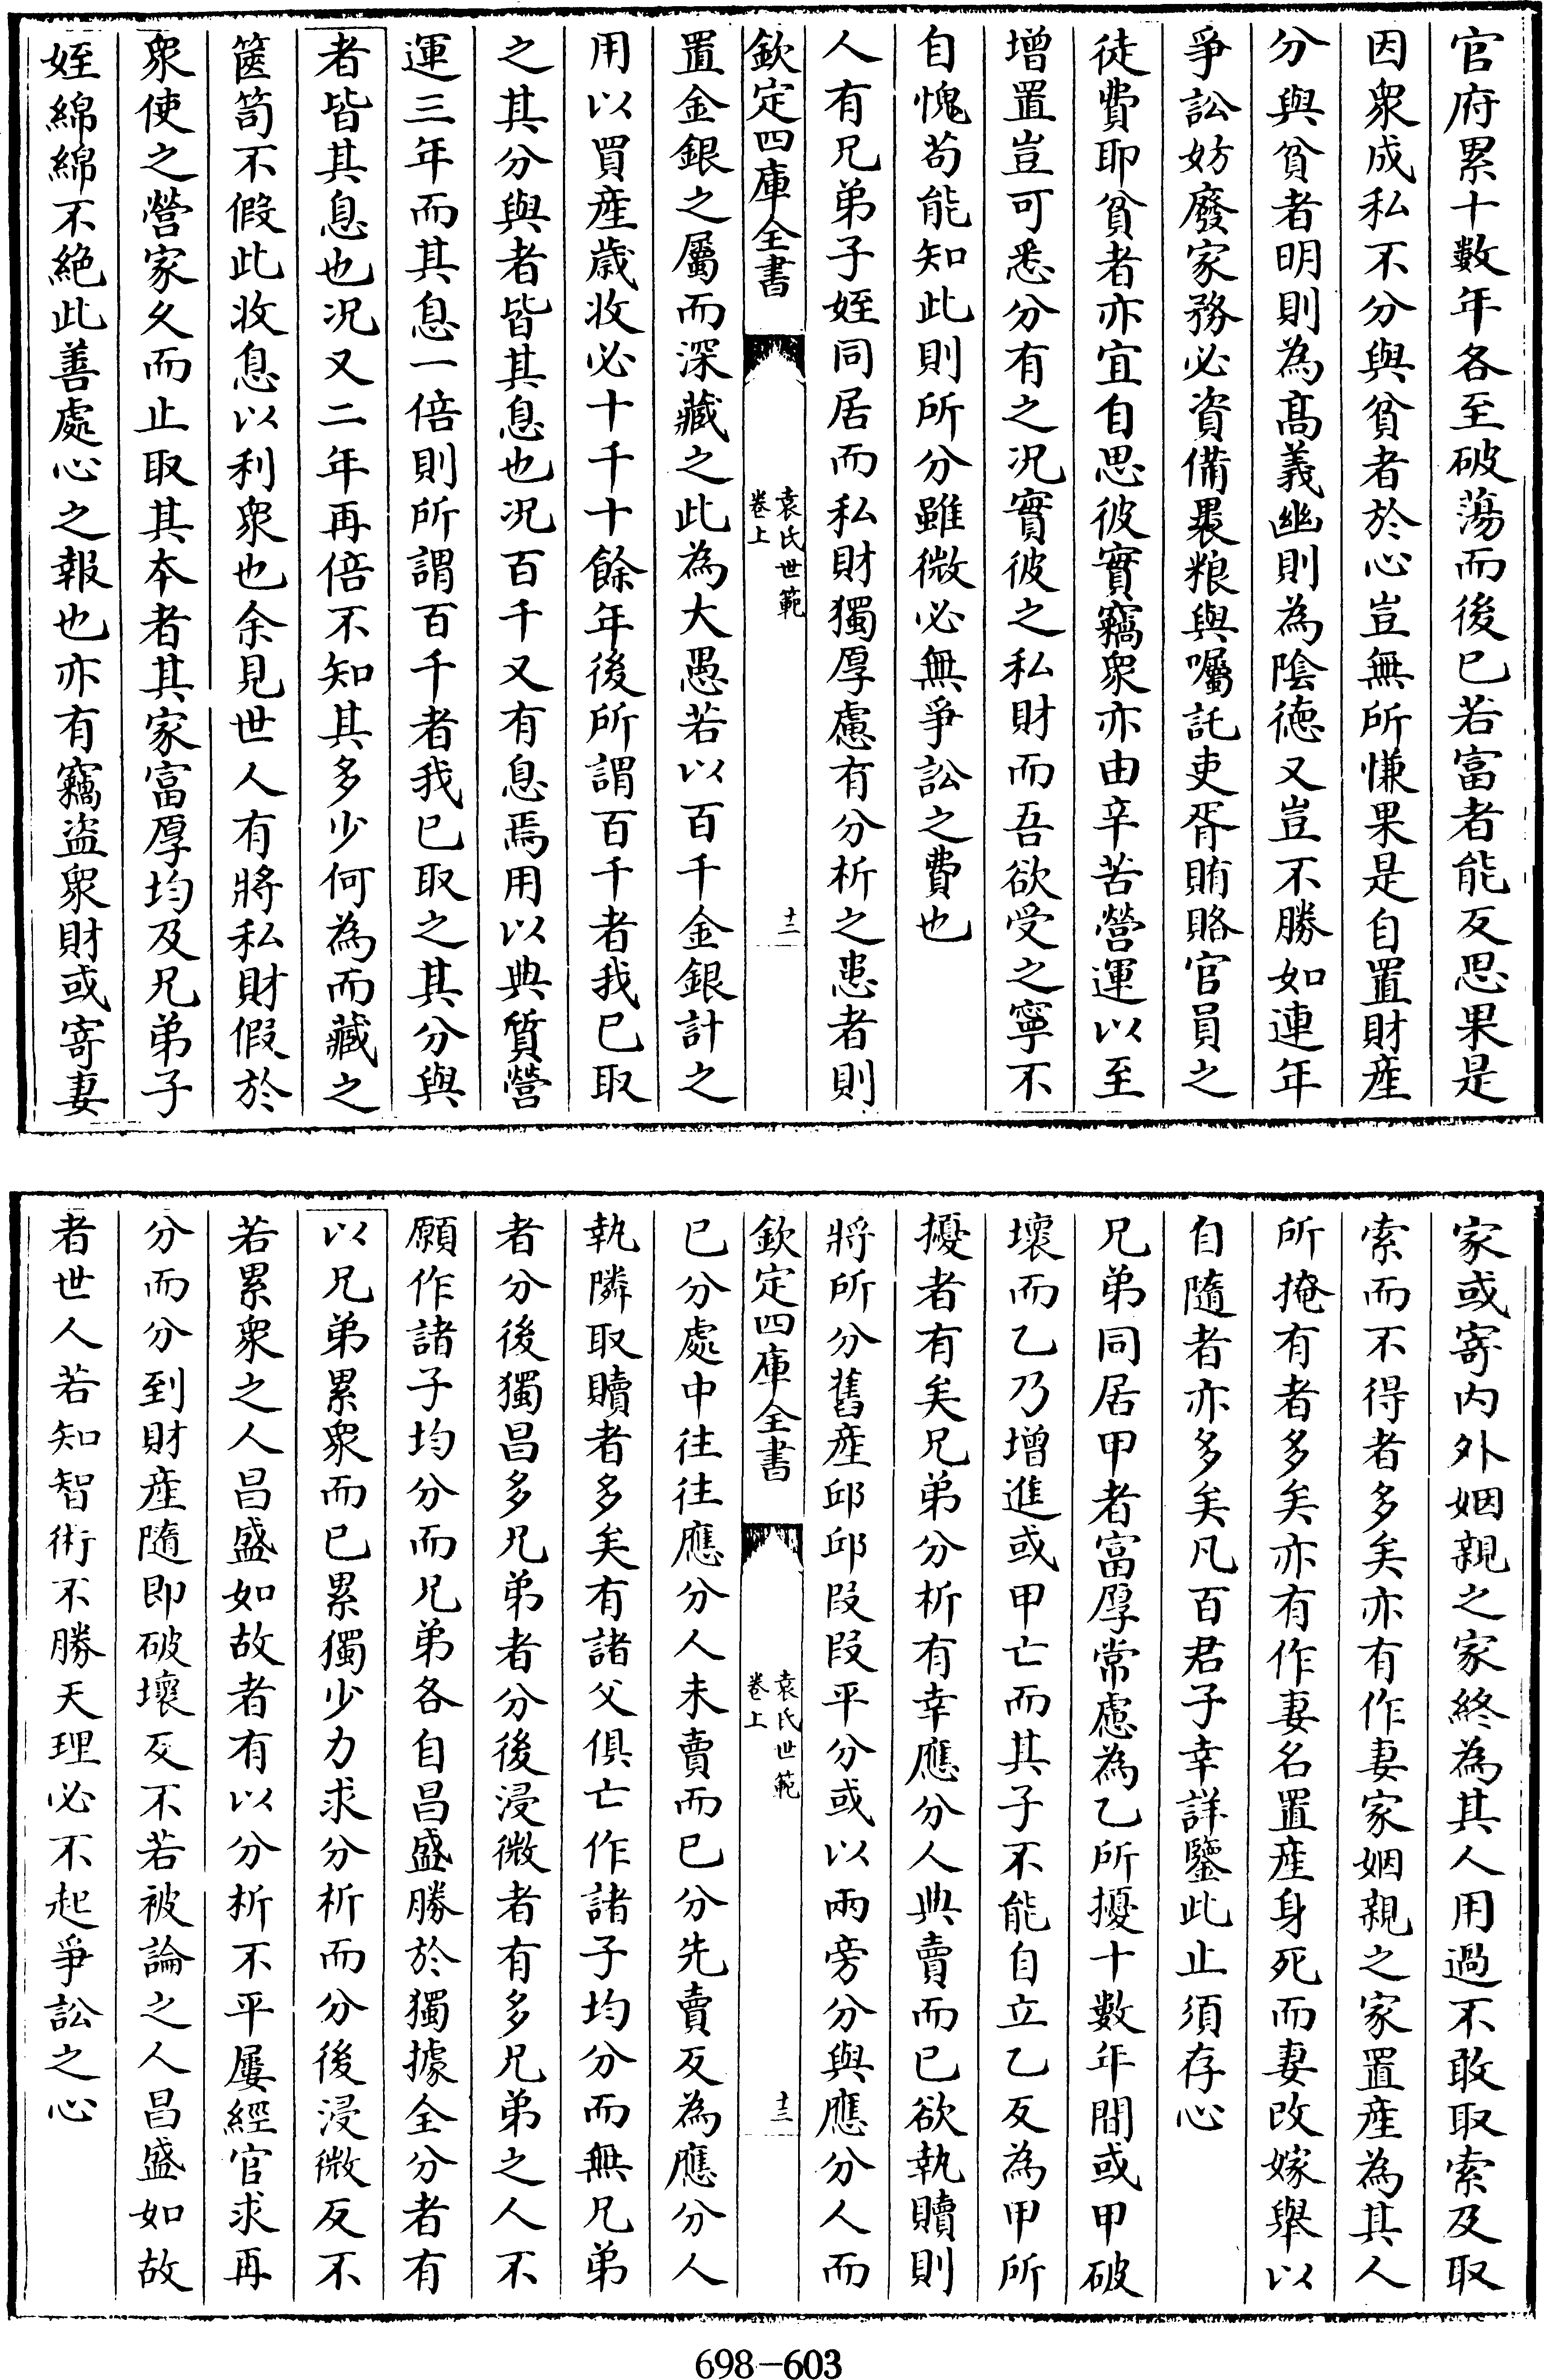 官府累十數年各至破蕩而後已若富者能反思果是
因衆成私不分與貧者於心豈無所慊果是自置財產
分與貧者明則為髙義幽則為陰徳又豈不勝如連年
爭訟妨廢家務必資備褁粮與囑託吏胥賄賂官員之
徒費耶貧者亦宜自思彼實竊衆亦由辛苦營運以至
增置豈可悉分有之况實彼之私財而吾欲受之寧不
自愧苟能知此則所分雖微必無爭訟之費也
人有兄弟子姪同居而私財獨厚慮有分析之患者則
欽定四庫全書
袁氏世範
卷上
十二
置金銀之屬而深藏之此為大愚若以百千金銀計之
用以買産歲收必十千十餘年後所謂百千者我已取
之其分與者皆其息也况百千又有息焉用以典質營
運三年而其息一倍則所謂百千者我已取之其分與
者皆其息也况又二年再倍不知其多少何為而藏之
篋笥不假此收息以利衆也余見世人有將私財假於
衆使之營家久而止取其本者其家富厚均及兄弟子
姪綿綿不絶此善處心之報也亦有竊盜衆財或寄妻
家或寄内外姻親之家終為其人用過不敢取索及取
索而不得者多矣亦有作妻家姻親之家置產為其人
所掩有者多矣亦有作妻名置產身死而妻改嫁舉以
自隨者亦多矣凡百君子幸詳鑒此止須存心
兄弟同居甲者富厚常慮為乙所擾十數年間或甲破
壞而乙乃增進或甲亡而其子不能自立乙反為甲所
擾者有矣兄弟分析有幸應分人典賣而已欲執贖則
將所分舊產邱邱段段平分或以兩旁分與應分人而
欽定四庫全書
袁氏世範
卷上
十三
已分處中往往應分人未賣而已分先賣反為應分人
執隣取贖者多矣有諸父俱亡作諸子均分而無兄弟
者分後獨昌多兄弟者分後浸微者有多兄弟之人不
願作諸子均分而兄弟各自昌盛勝於獨據全分者有
以兄弟累衆而已累獨少力求分析而分後浸微反不
若累衆之人昌盛如故者有以分析不平屢經官求再
分而分到財産隨即破壞反不若被論之人昌盛如故
者世人若知智術不勝天理必不起爭訟之心
698-603